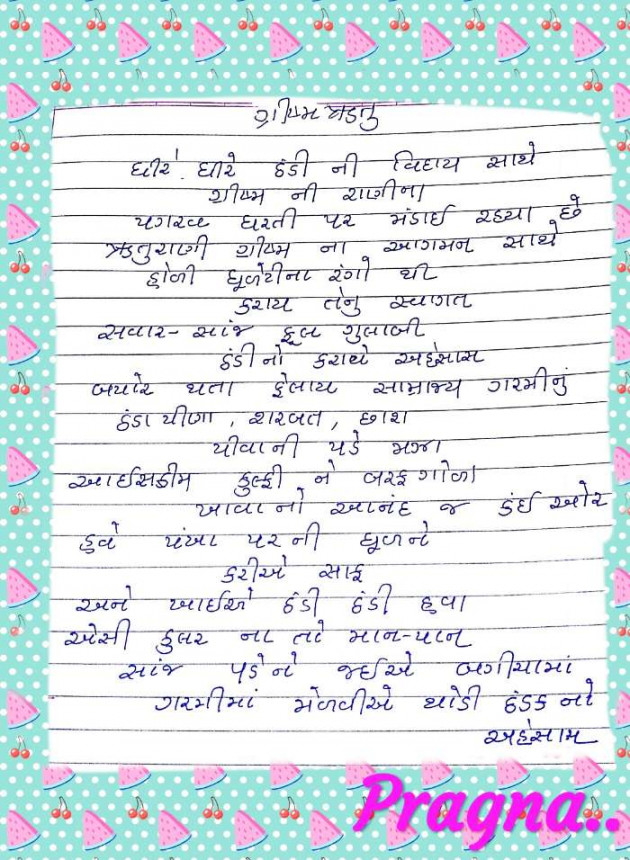 ગ્રીષ્મ ઋતુ
ધીરે ધીરે ઠંડી ની વિદાય સાથે
ગ્રીષ્મ ની રાણીના
પગરવ ધરતી પર મંડાઈ રહયા છે
ઋતુરાણી ગ્રીષ્મ ના આગમન સાથે
હોળી ધૂળેટીના રંગો થી
કરાય તેનુ સ્વાગત
સવાર-સાંજ ફૂલ ગુલાબી
ઠંડીનો કરાવે અહેસાસ
બપોર થતા ફેલાય સામ્રાજ્ય ગરમીનું
ઠંડા પીણા, શરબત, છાશ
પીવાની પડે મજા
આઈસક્રીમ કુલ્ફી ને બરફગોળા
ખાવાનો આનંદ જ કંઈ ઓર
હવે પંખા પરની ધૂળને
કરીએ સાફ
અને ખાઈએ ઠંડી ઠંડી હવા
એસી કુલર ના તો માન-પાન
સાંજ પડે ને જઈએ બગીચામાં
ગરમીમાં મેળવીએ થોડી ઠંડક નો
અહેસાસ
Pragna..